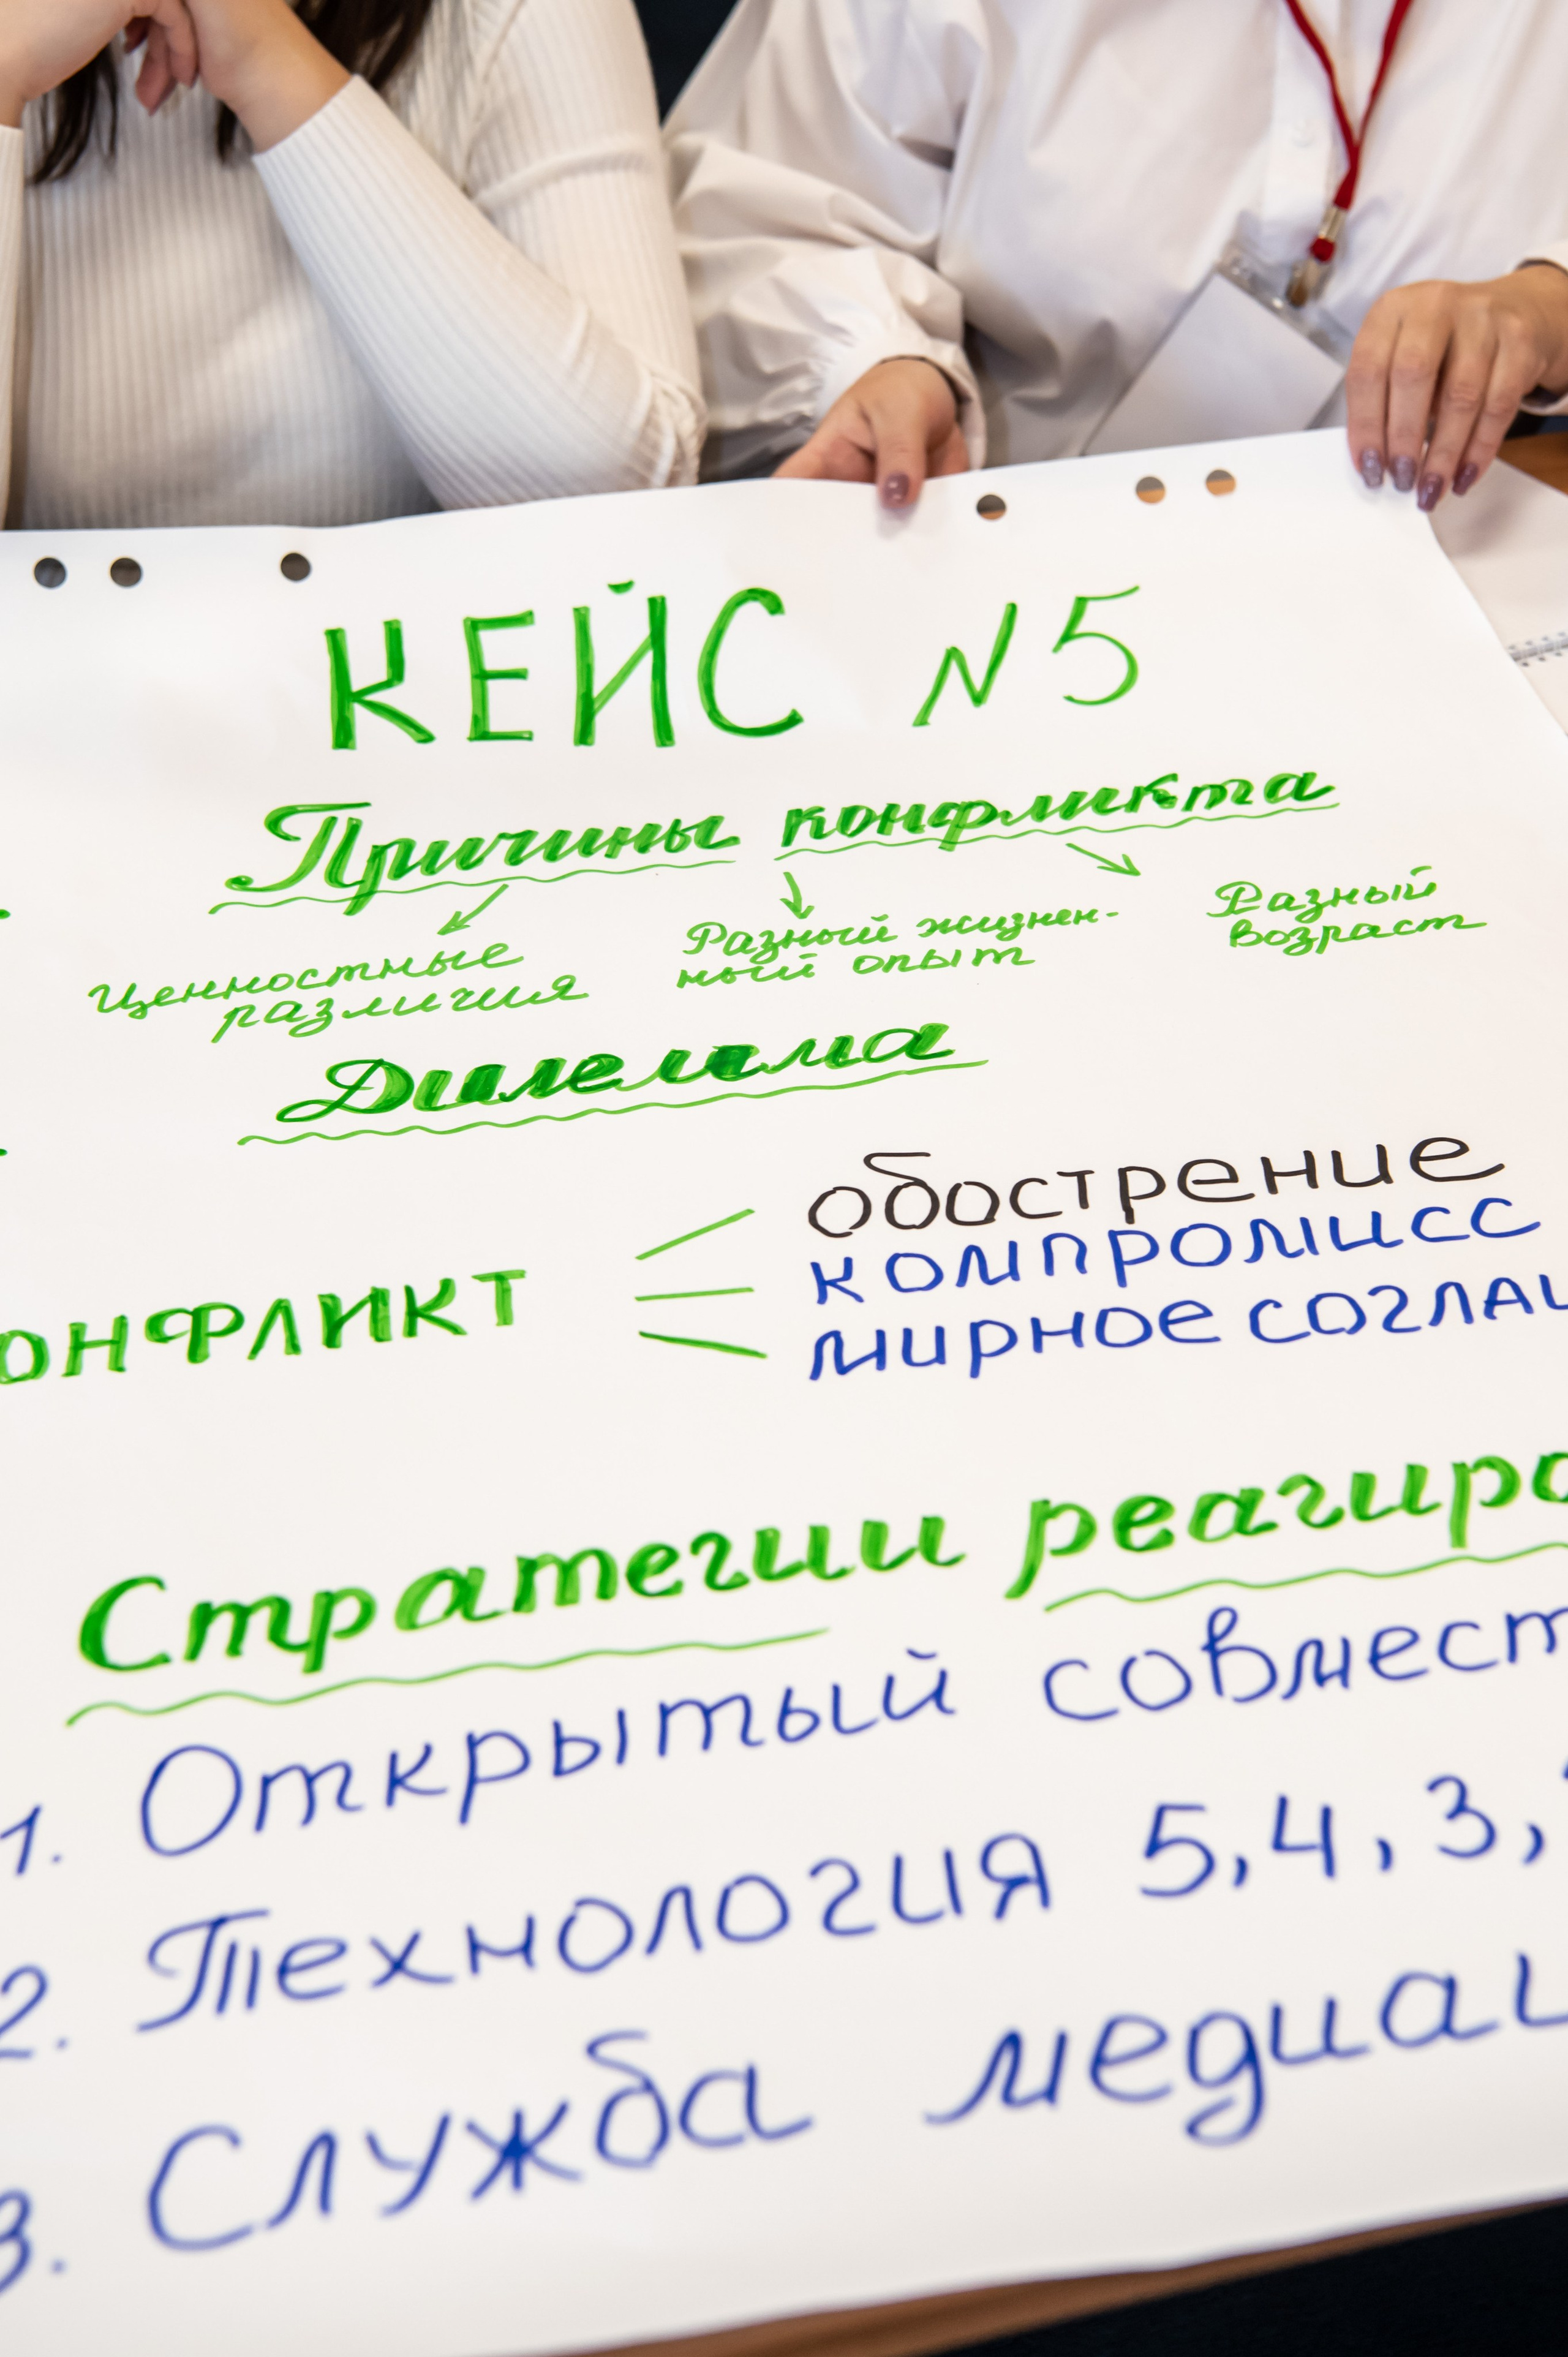 КЕЙС N5
Причины конфликта
Ценностные
различия
Разный жизнен-
ный опыт
Разный
возраст
Дилемма
онфликт
обострение
компромисс
мирное соглаш
Стратегии реагиро
1. Открытый совмест
2. Технология 5, 4, 3,
3. Служба медиац